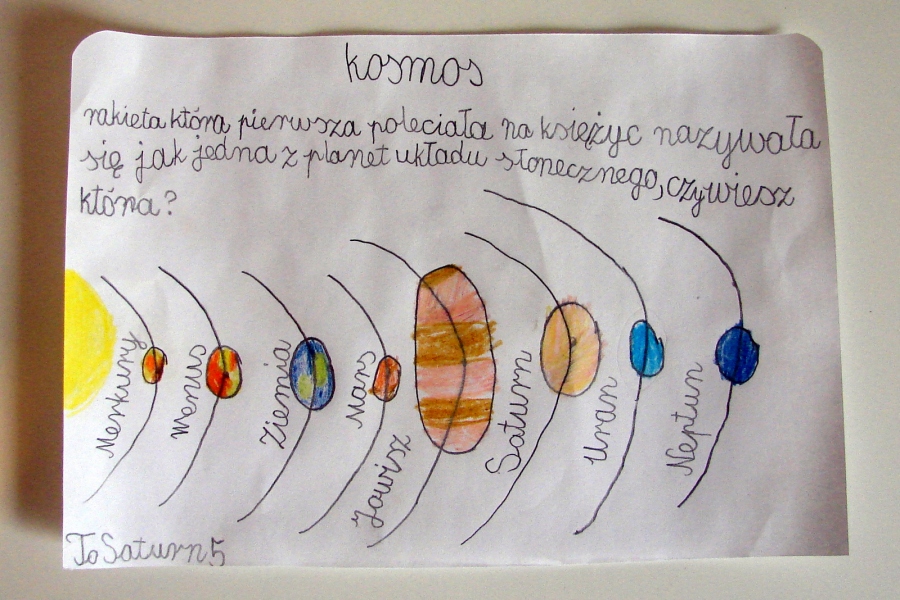 kosmos
rakieta która pierwsza poleciała na księżyc nazywała
się jak jedna z planet układu słonecznego, czy wiesz
która?
Merkury
Wenus
Ziemia
Mars
Jowisz
Saturn
Uran
Neptun
To Saturn 5